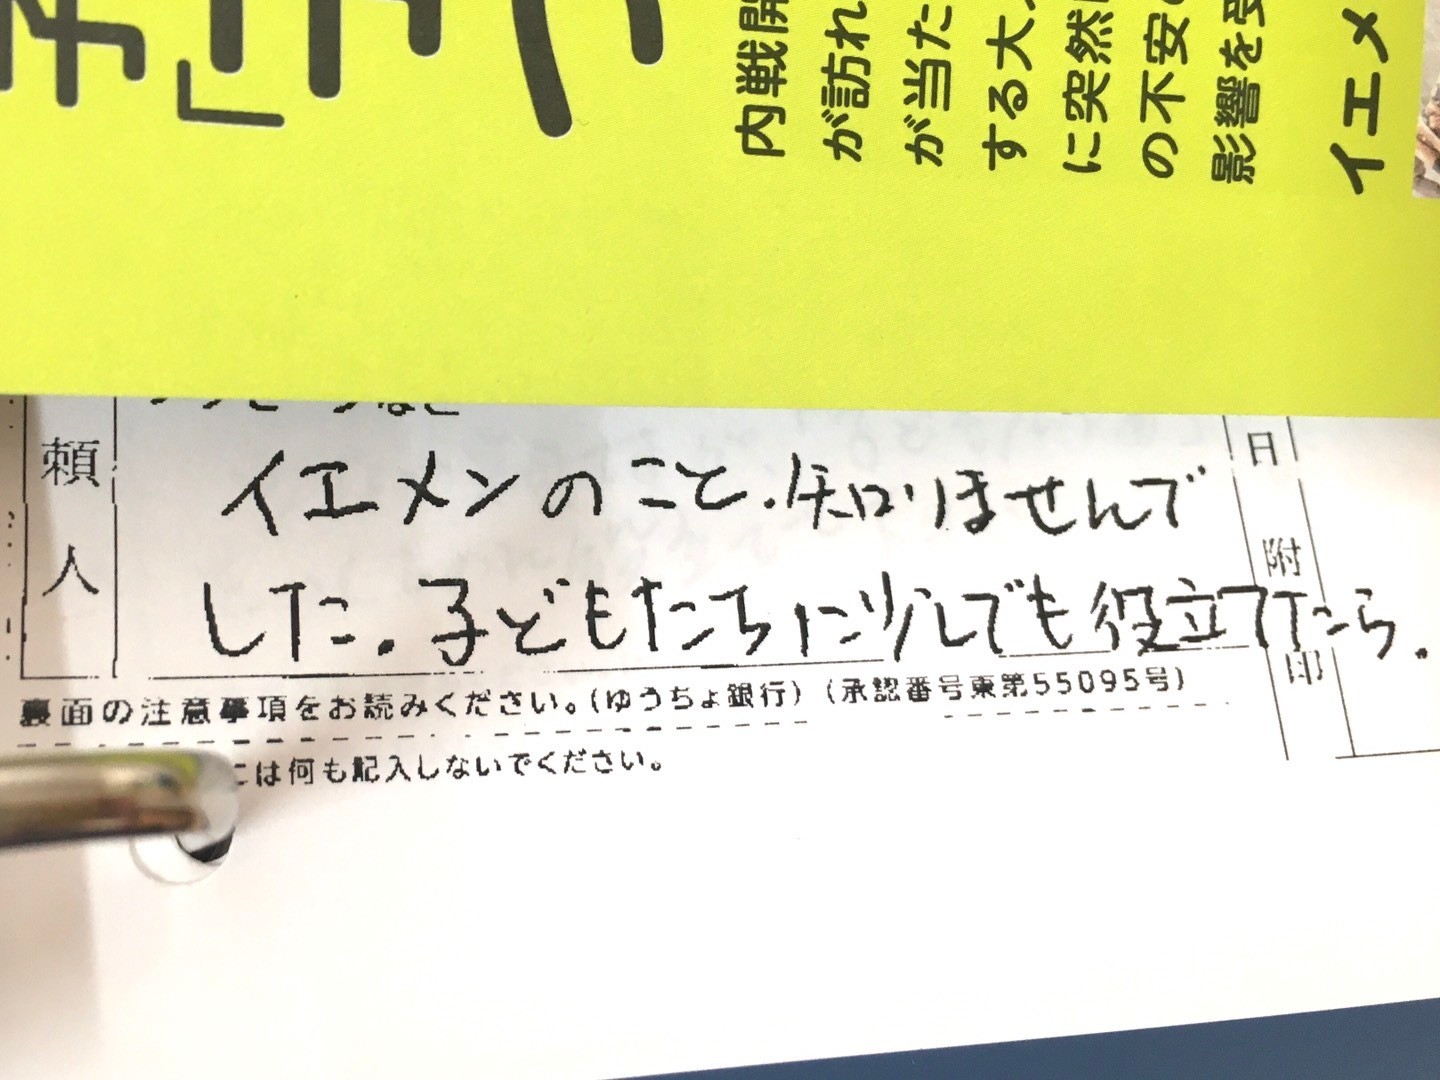 内戦開
が訪れ
が当た
する大
に突然
の不安
影響を受
イエメ
頼人
日附印
イエメンのこと.知りませんで
した.子どもたちに少しでも役立てたら.
裏面の注意事項をお読みください。(ゆうちょ銀行)(承認番号東第55095号)
には何も記入しないでください。